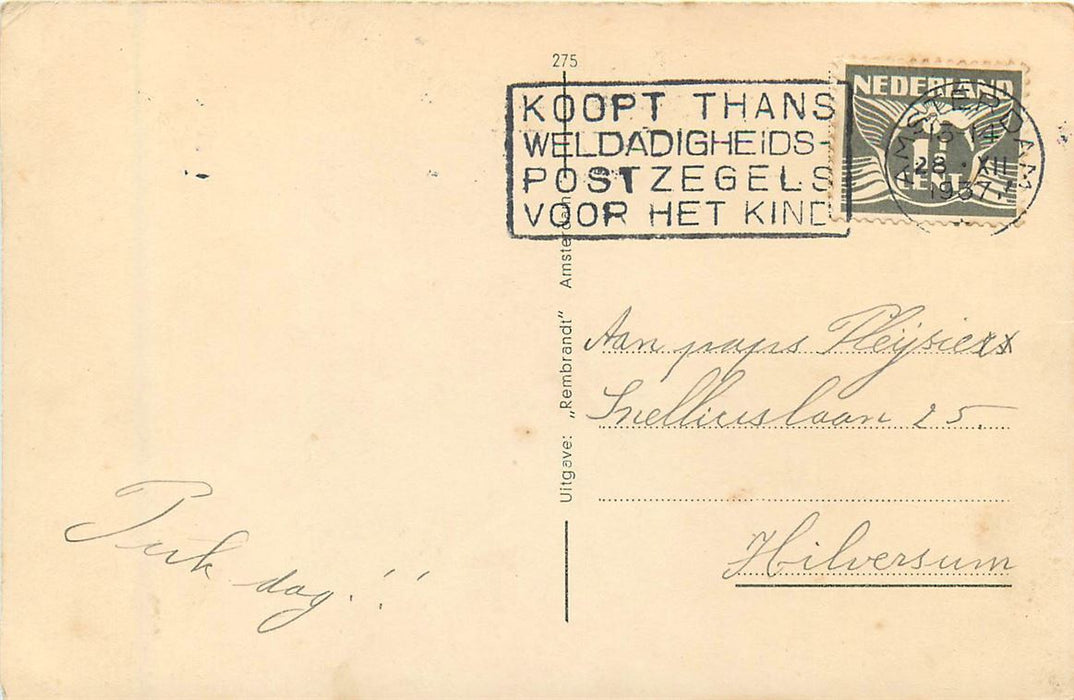 275
KOOPT THANS
WELDADIGHEIDS-
POSTZEGELS
VOOR HET KIND
NEDERLAND
1½
CENT
AMSTERDAM
28 · XII
1937
Uitgave: „Rembrandt" Amsterdam
Aan paps Pleijsier
Snelliuslaan 25.
Hilversum
dag!!